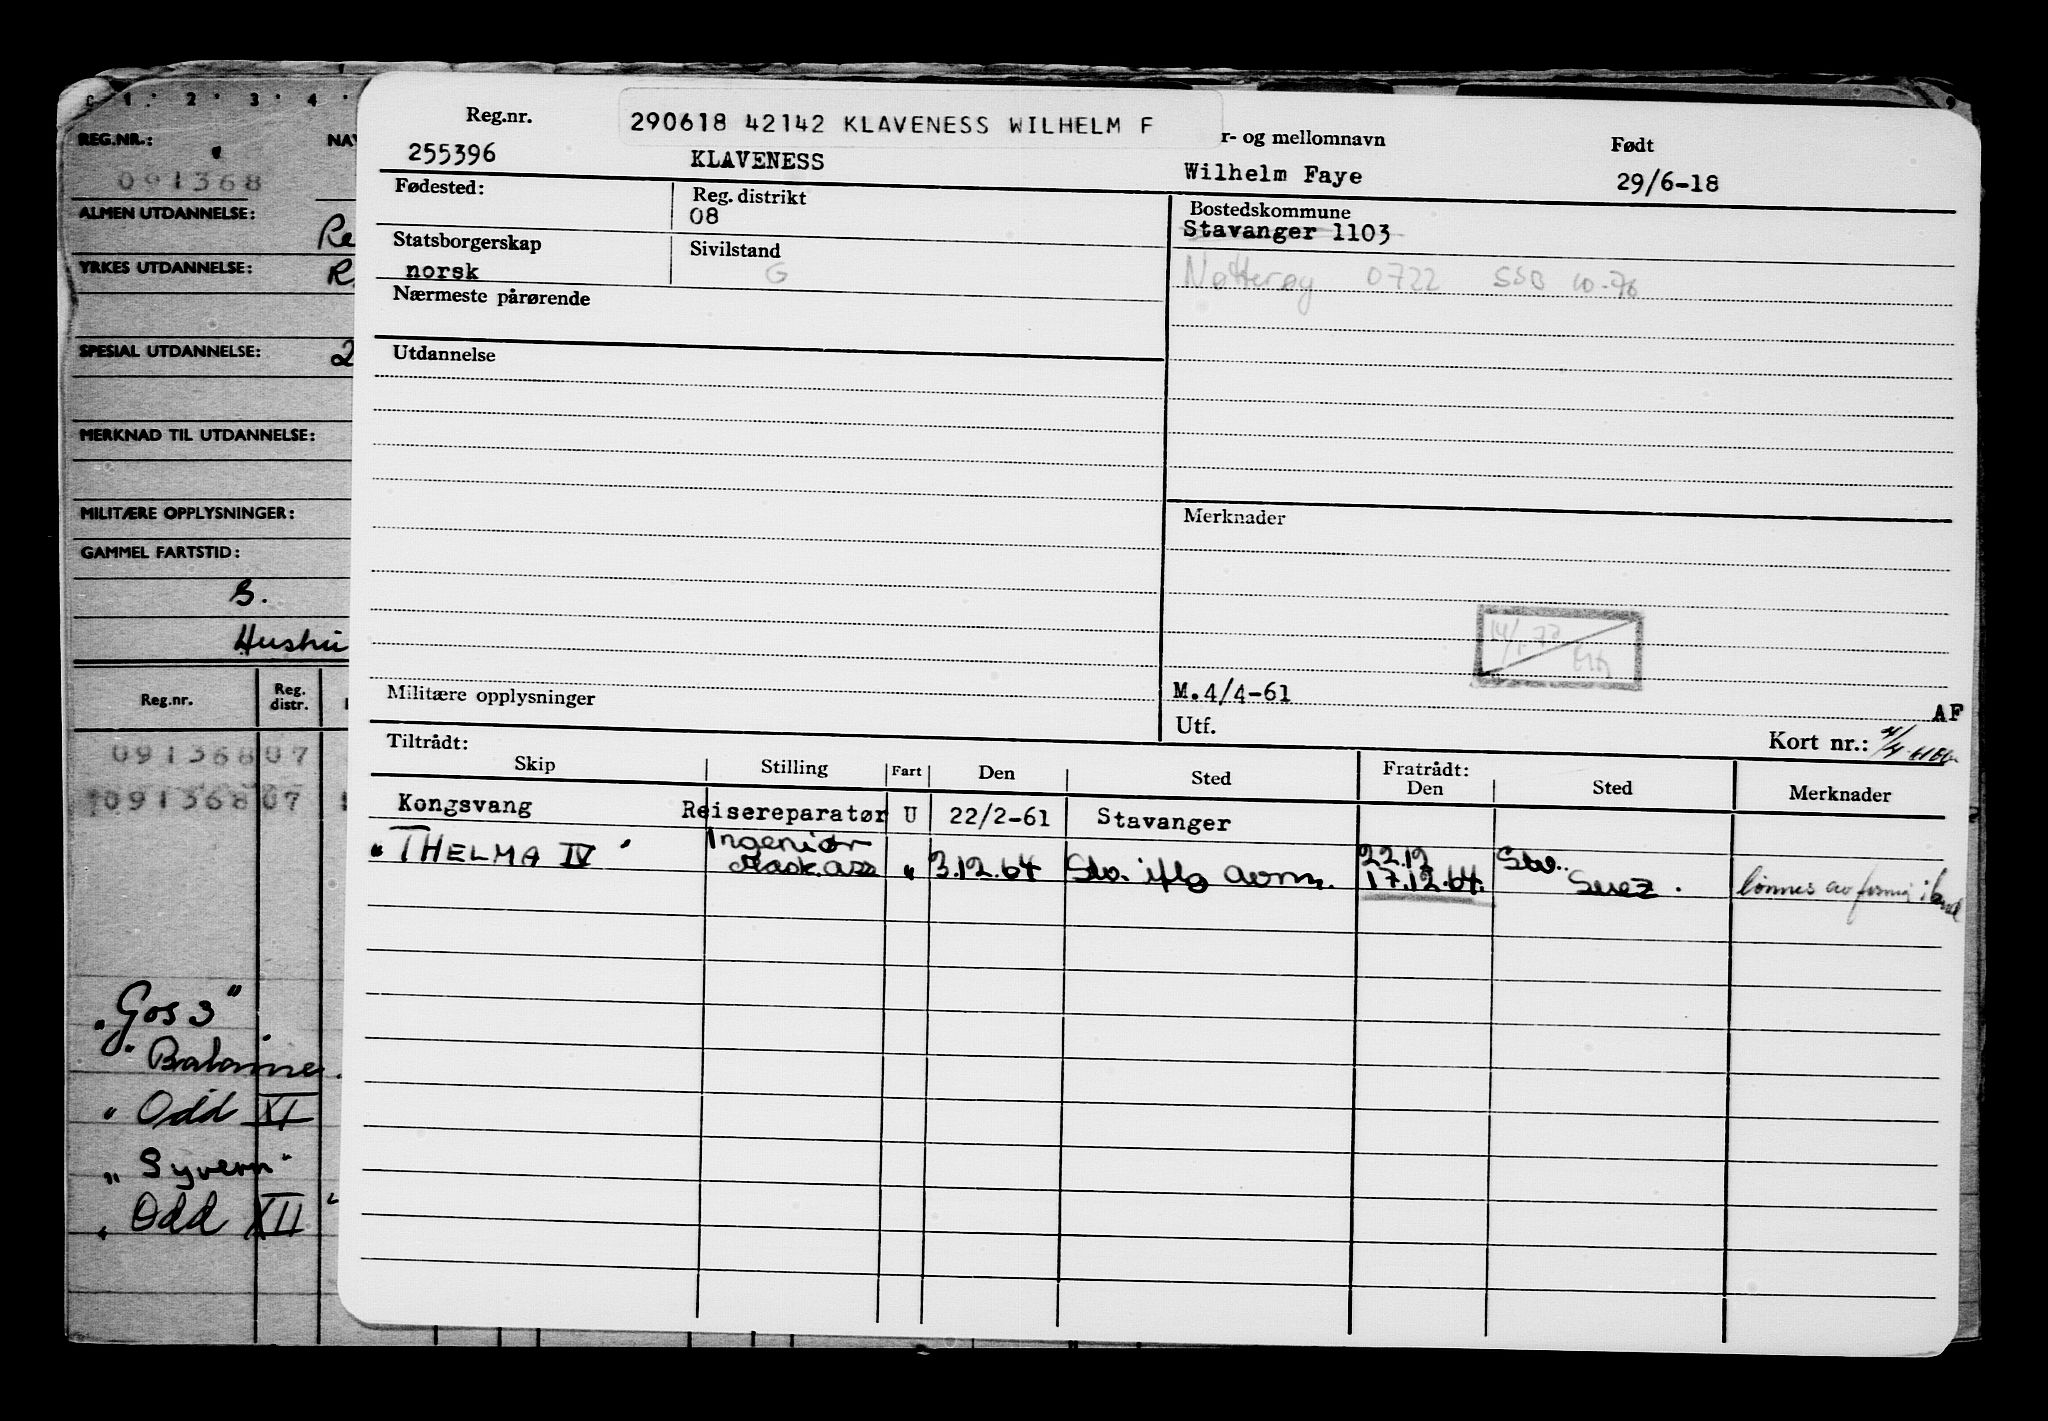 C 1. 2 3 4
REG.NR.:
091368
ALMEN UTDANNELSE:
YRKES UTDANNELSE:
SPESIAL UTDANNELSE:
MERKNAD TIL UTDANNELSE:
MILITÆRE OPPLYSNINGER:
GAMMEL FARTSTID:
S.
Reg.nr. Reg. distr.
091368 07
091368 07
"Gos 3"
" Balaine
" Odd XI
" Syvern"
" Odd XII "
Reg.nr. 290618 42142 KLAVENESS WILHELM F r- og mellomnavn Født
255396 KLAVENESS Wilhelm Faye 29/6-18
Fødested: Reg. distrikt Bostedskommune
08 Stavanger 1103
Statsborgerskap Sivilstand
norsk G Nøtterøy 0722 SSB 10-76
Nærmeste pårørende
Utdannelse
Merknader
14/1-77
Militære opplysninger M.4/4-61 AF
Utf. Kort nr.:
Tiltrådt: Fratrådt:
Skip Stilling Fart Den Sted Den Sted Merknader
Kongsvang Reisereparatør U 22/2-61 Stavanger
"THELMA IV" Ingeniør Mask.ass " 3.12.64 Stv. iflg avm. 22.12 17.12.64. Stv. Suez. lønnes av firma i land